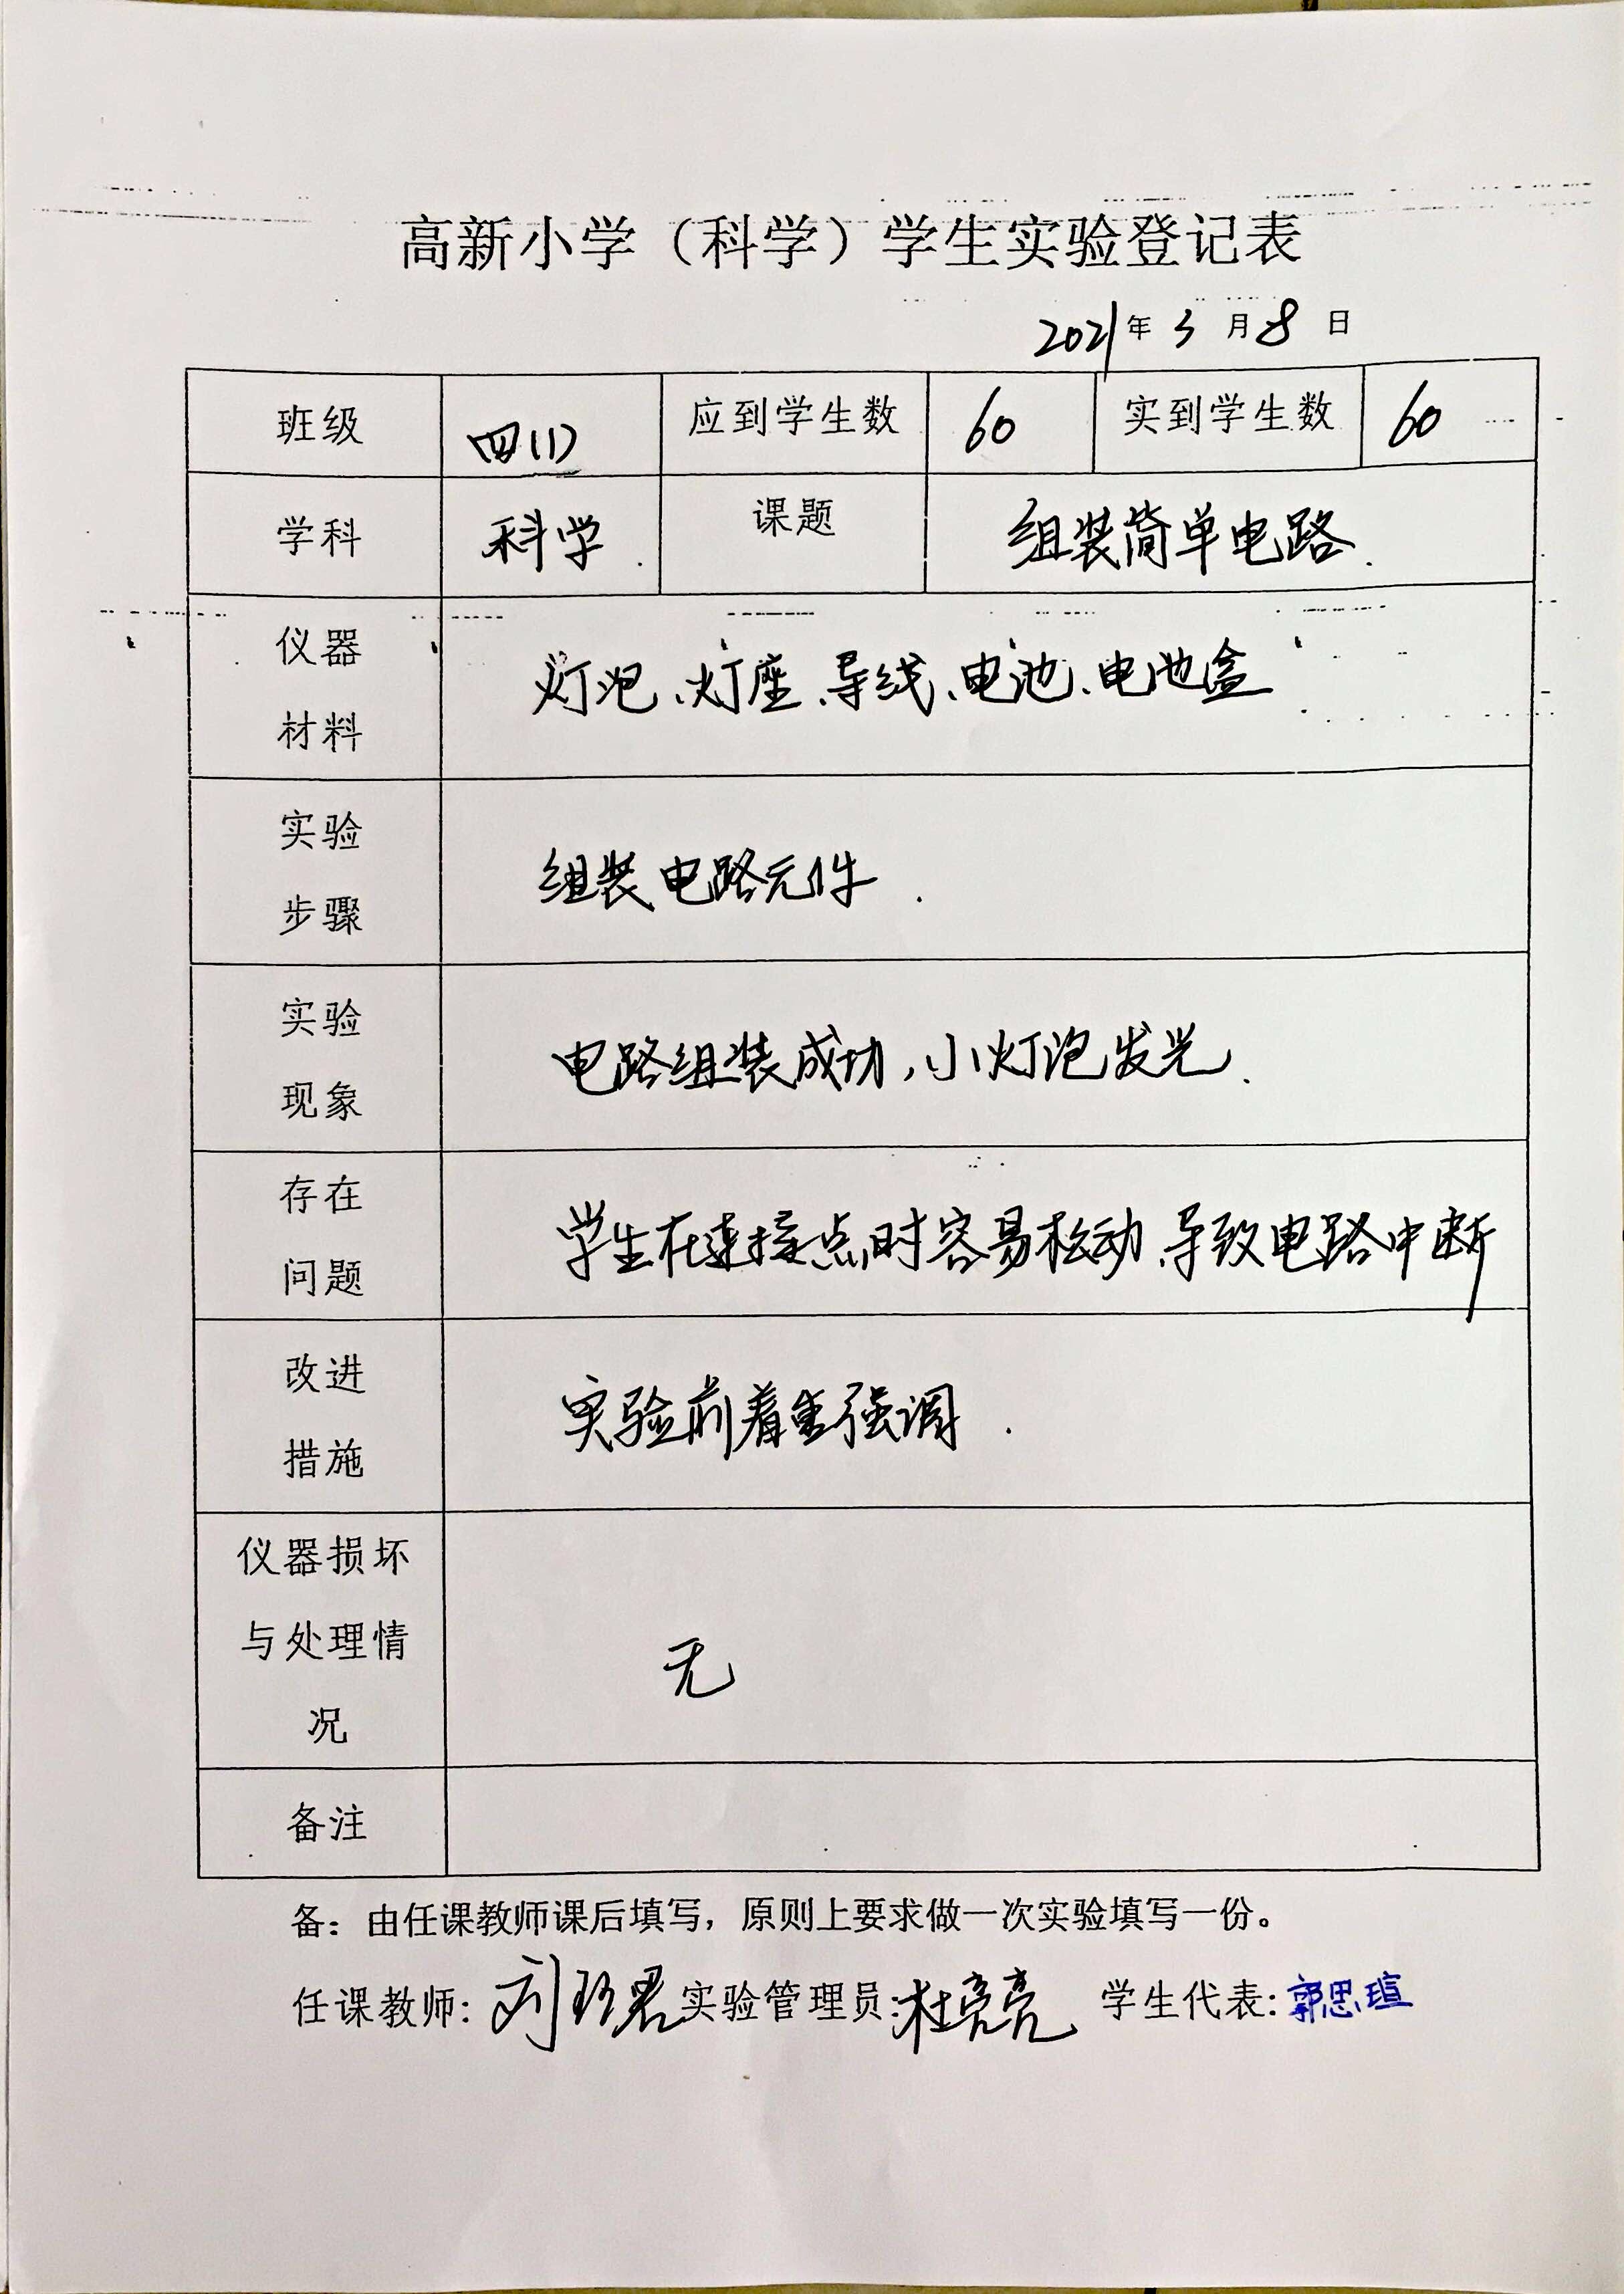 高新小学（科学）学生实验登记表
2021年3月8日
班级 四(1) 应到学生数 60 实到学生数 60
学科 科学. 课题 组装简单电路.
仪器
材料
灯泡、灯座、导线、电池、电池盒
实验
步骤
组装电路元件.
实验
现象
电路组装成功,小灯泡发光.
存在
问题
学生在连接点时容易松动、导致电路中断
改进
措施
实验前着重强调.
仪器损坏
与处理情
况
无
备注
备：由任课教师课后填写，原则上要求做一次实验填写一份。
任课教师:刘君 实验管理员:杜亮亮 学生代表:郭思瑄